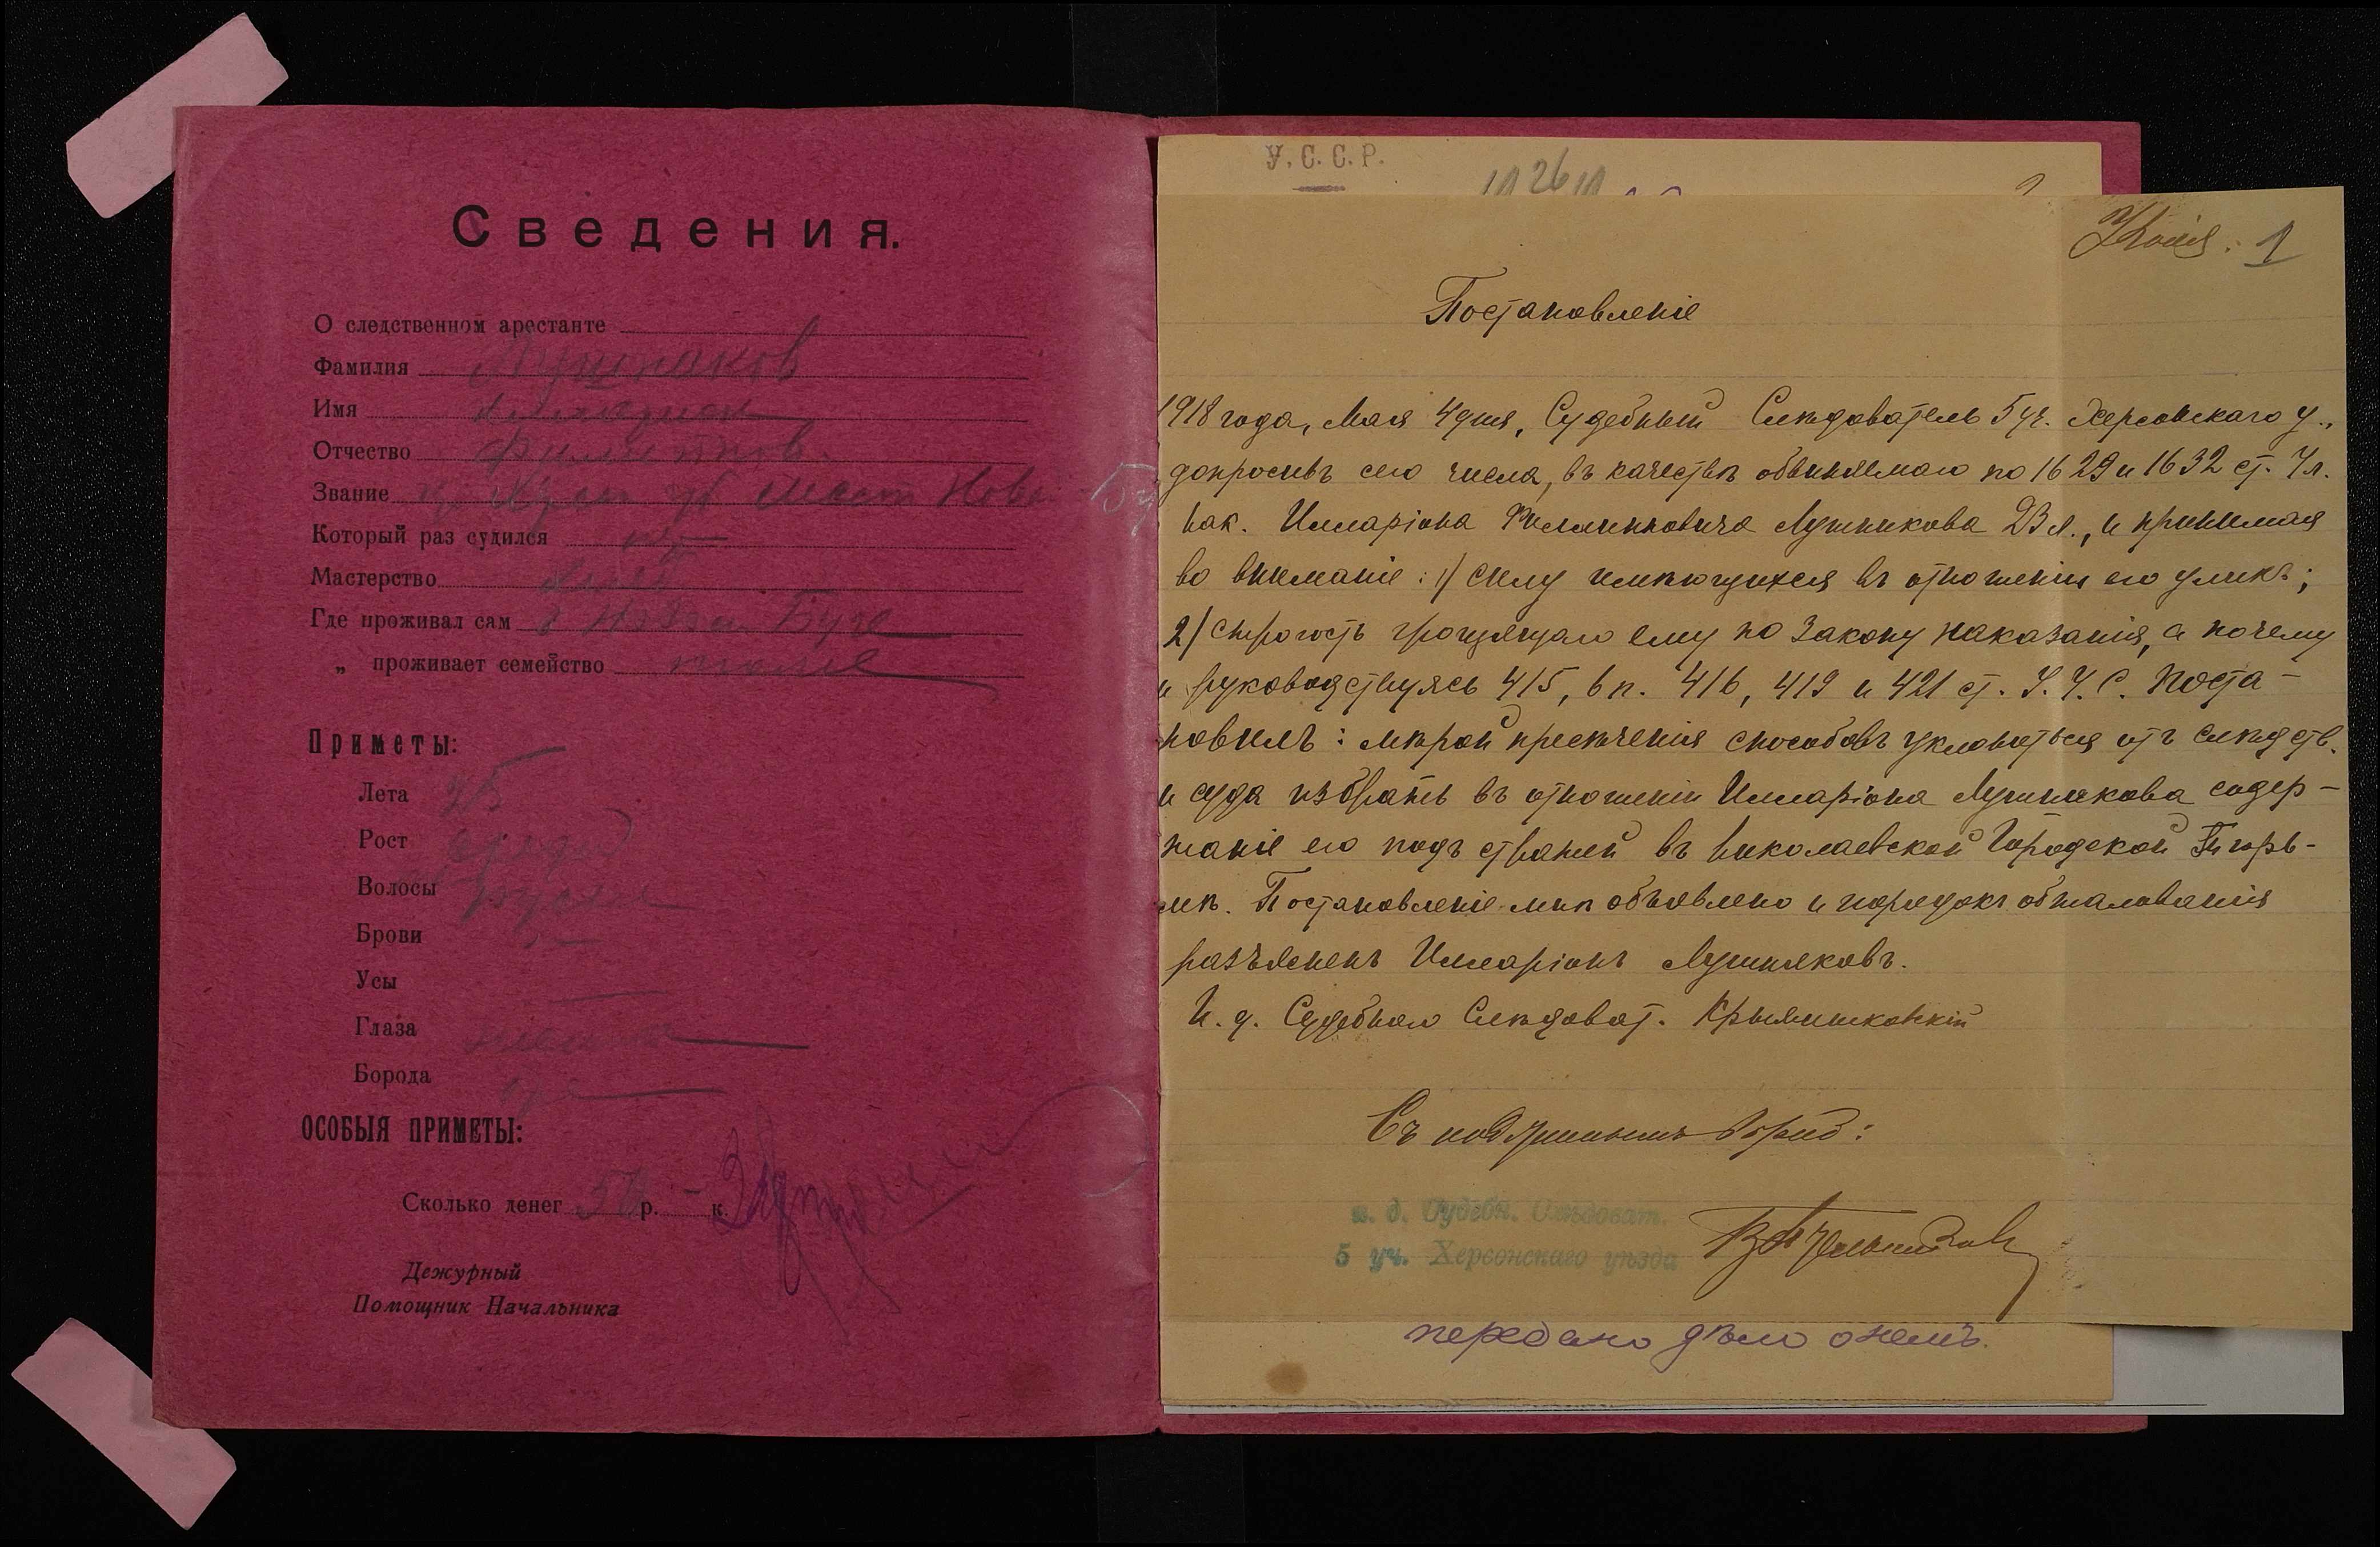 Сведения.
О следственном арестанте
Фамилия Лушпаков
Имя Илларион
Отчество Филиппов.
Звание Херсон губ мест Ново Бу
Который раз судился
Мастерство
Где проживал сам в Новом Буге
„ проживает семейство тоже
Приметы:
Лета
Рост средн
Волосы русые
Брови
Усы
Глаза
Борода
ОСОБЫЯ ПРИМЕТЫ:
Сколько денег р. — к.
Дежурный
Помощник Начальника
У.С.С.Р.
Копія. 1
Постановленіе
1918 года, Мая 4 дня, Судебный Следователь 5 уч. Херсонскаго у.,
допросивъ сего числа, въ качествѣ обвиняемаго по 1629 и 1632 ст. Ул.
нак. Илларіона Филипповича Лушпикова 23 л., и принимая
во вниманіе: 1/ силу имѣющихся въ отношеніи его уликъ;
2/ строгость грозящаго ему по закону наказанія, а почему
и руководствуясь 415, 6 п. 416, 419 и 421 ст. У. У. С. Поста-
новилъ: мѣрой пресѣченія способовъ уклоняться отъ слѣдств.
и суда избрать въ отношеніи Илларіона Лушпакова содер-
жаніе его подъ стражей въ Николаевской Городской Тюрь-
мѣ. Постановленіе мнѣ объявлено и порядокъ обжалованія
разъясненъ Илларіонъ Лушпаковъ.
И. д. Судебнаго Слѣдоват.
Съ подлиннымъ вѣрно:
и. д. Судебн. Слѣдоват.
5 уч. Херсонскаго уѣзда
передано дѣло о немъ.